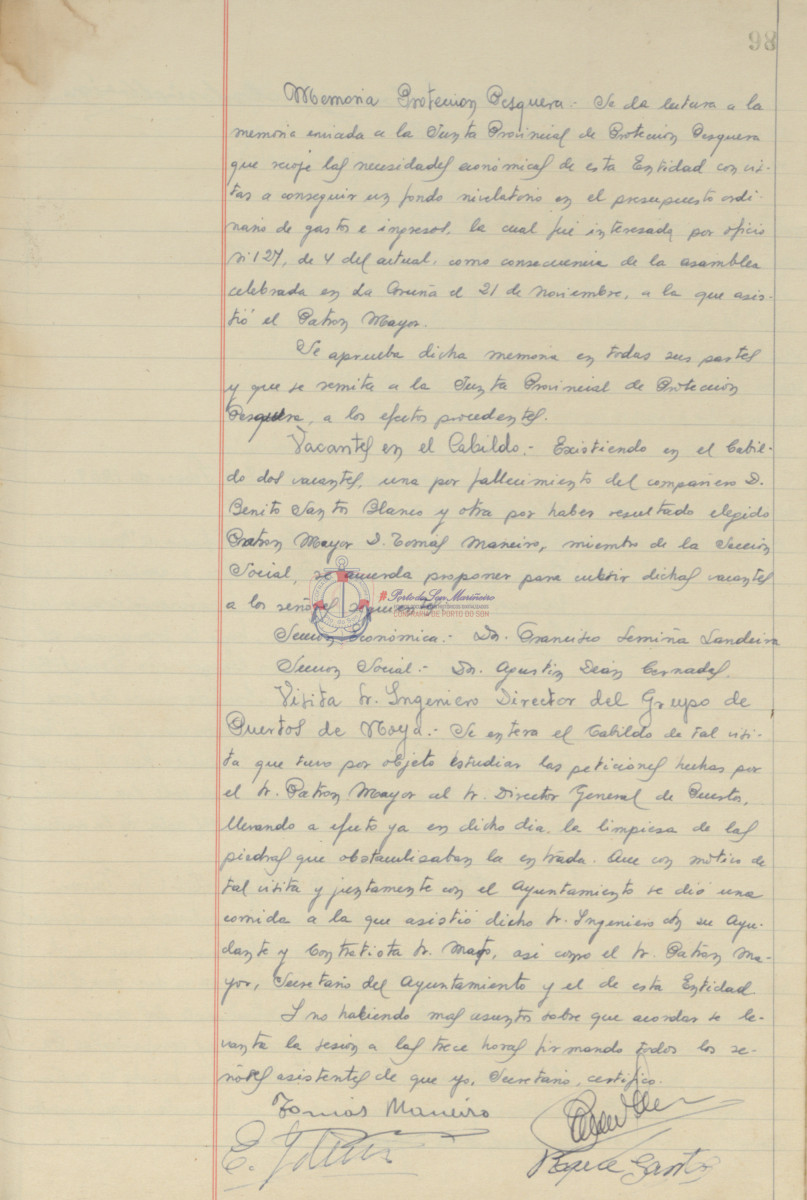 98
Memoria Proteccion Pesquera.- Se da lectura a la
memoria enviada a la Junta Provincial de Proteccion Pesquera
que recoje las necesidades económicas de esta Entidad con vis-
tas a conseguir un fondo nivelatorio en el presupuesto ordi-
nario de gastos e ingresos, la cual fué interesada por oficio
nº 127, de 4 del actual, como consecuencia de la asamblea
celebrada en La Coruña el 21 de Noviembre, a la que asis-
tió el Patron Mayor.
Se aprueba dicha memoria en todas sus partes
y que se remita a la Junta Provincial de Proteccion
Pesquera, a los efectos procedentes.
Vacantes en el Cabildo.- Existiendo en el Cabil-
do dos vacantes, una por fallecimiento del compañero D.
Benito Santos Blanco y otra por haber resultado elegido
Patron Mayor D. Tomás Maneiro, miembro de la Seccion
Social, se acuerda proponer para cubrir dichas vacantes
a los señores siguientes
#PortodoSonMariñeiro
CONFRARÍA DE PORTO DO SON
Seccion Económica.- Dn. Francisco Lemiña Landeira
Seccion Social.- Dn. Agustin Dean Cernades.
Visita Sr. Ingeniero Director del Grupo de
Puertos de Noya.- Se entera el Cabildo de tal visi-
ta que tuvo por objeto estudiar las peticiones hechas por
el Sr. Patron Mayor al Sr. Director General de Puertos,
llevando a efecto ya en dicho dia, la limpiesa de las
piedras que obstaculisaban la entrada. Que con motivo de
tal visita y juntamente con el Ayuntamiento se dió una
comida a la que asistió dicho Sr. Ingeniero con su Ayu-
dante y Contratista Sr. asi como el Sr. Patron Ma-
yor, Secretario del Ayuntamiento y el de esta Entidad
I no habiendo mas asuntos sobre que acordar se le-
vanta la sesion a las trece horas firmando todos los se-
ñores asistentes de que yo, Secretario, certifico.
Tomás Maneiro